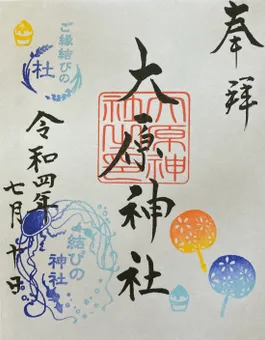 奉拝
大原神社
大原神社之印
ご縁結びの
杜
令和四年
七月十日
結びの
神社